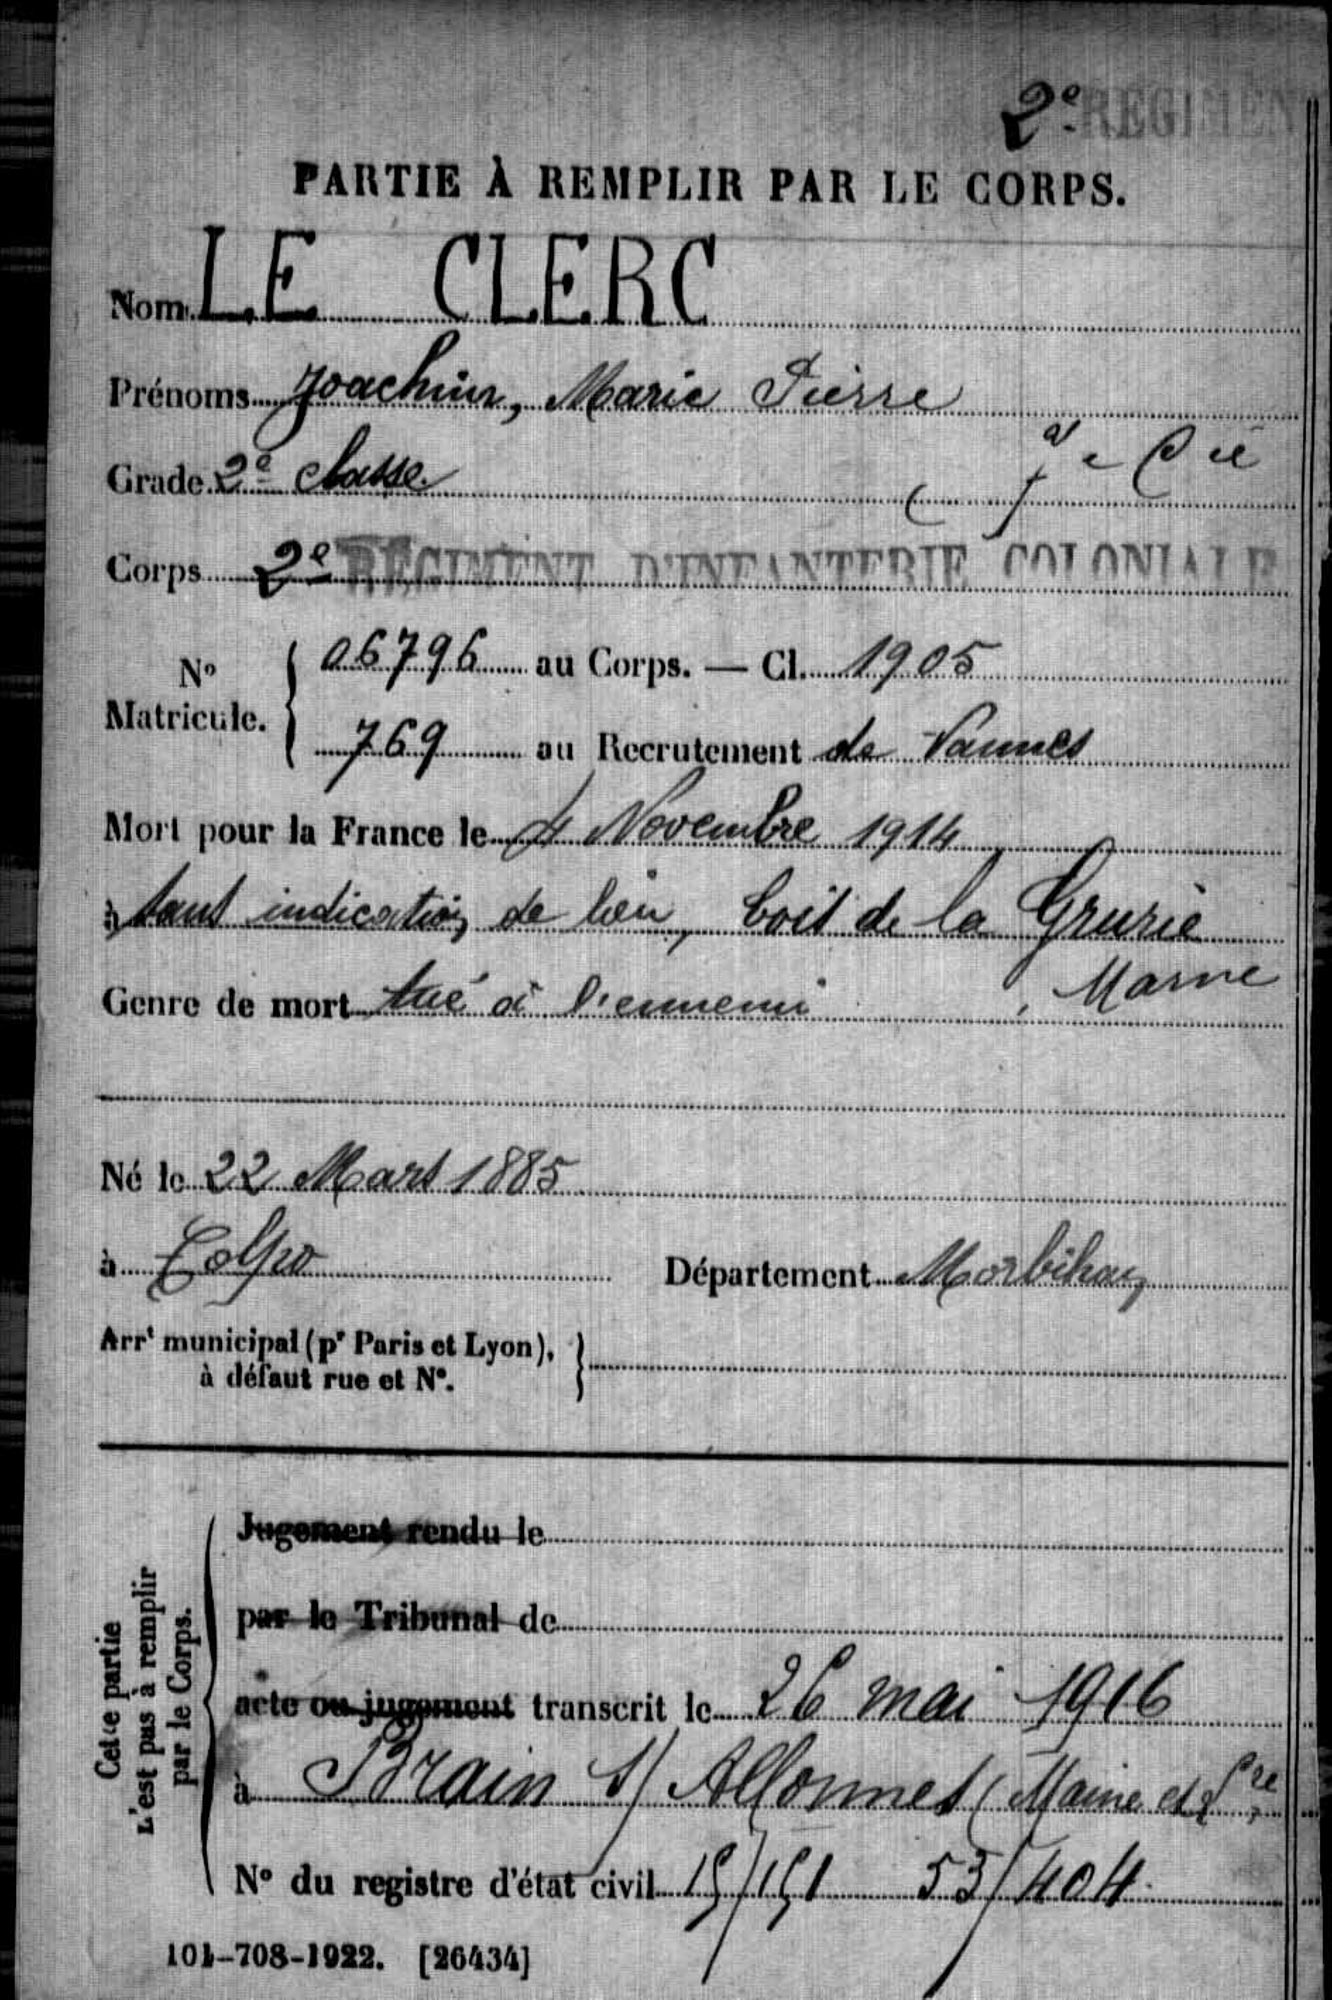 2e REGIMEN
PARTIE À REMPLIR PAR LE CORPS.
Nom LE CLERC
Prénoms Joachim, Marie Pierre
Grade 2e classe
Corps 2e RÉGIMENT D'INFANTERIE COLONIALE
No Matricule. { 06796 au Corps. — Cl. 1905
769 au Recrutement de Vannes
Mort pour la France le 4 Novembre 1914
à sans indication de lieu, bois de la Grurie
Marne
Genre de mort tué à l'ennemi
Né le 22 Mars 1885
à Colpo Département Morbihan
Arrt municipal (pr Paris et Lyon), à défaut rue et No. }
Cette partie n'est pas à remplir par le Corps.
Jugement rendu le
par le Tribunal de
acte ou jugement transcrit le 26 mai 1916
à Brain s/ Allonnes (Maine et Lre
No du registre d'état civil 15/151 53/404
101-708-1922. [26434]